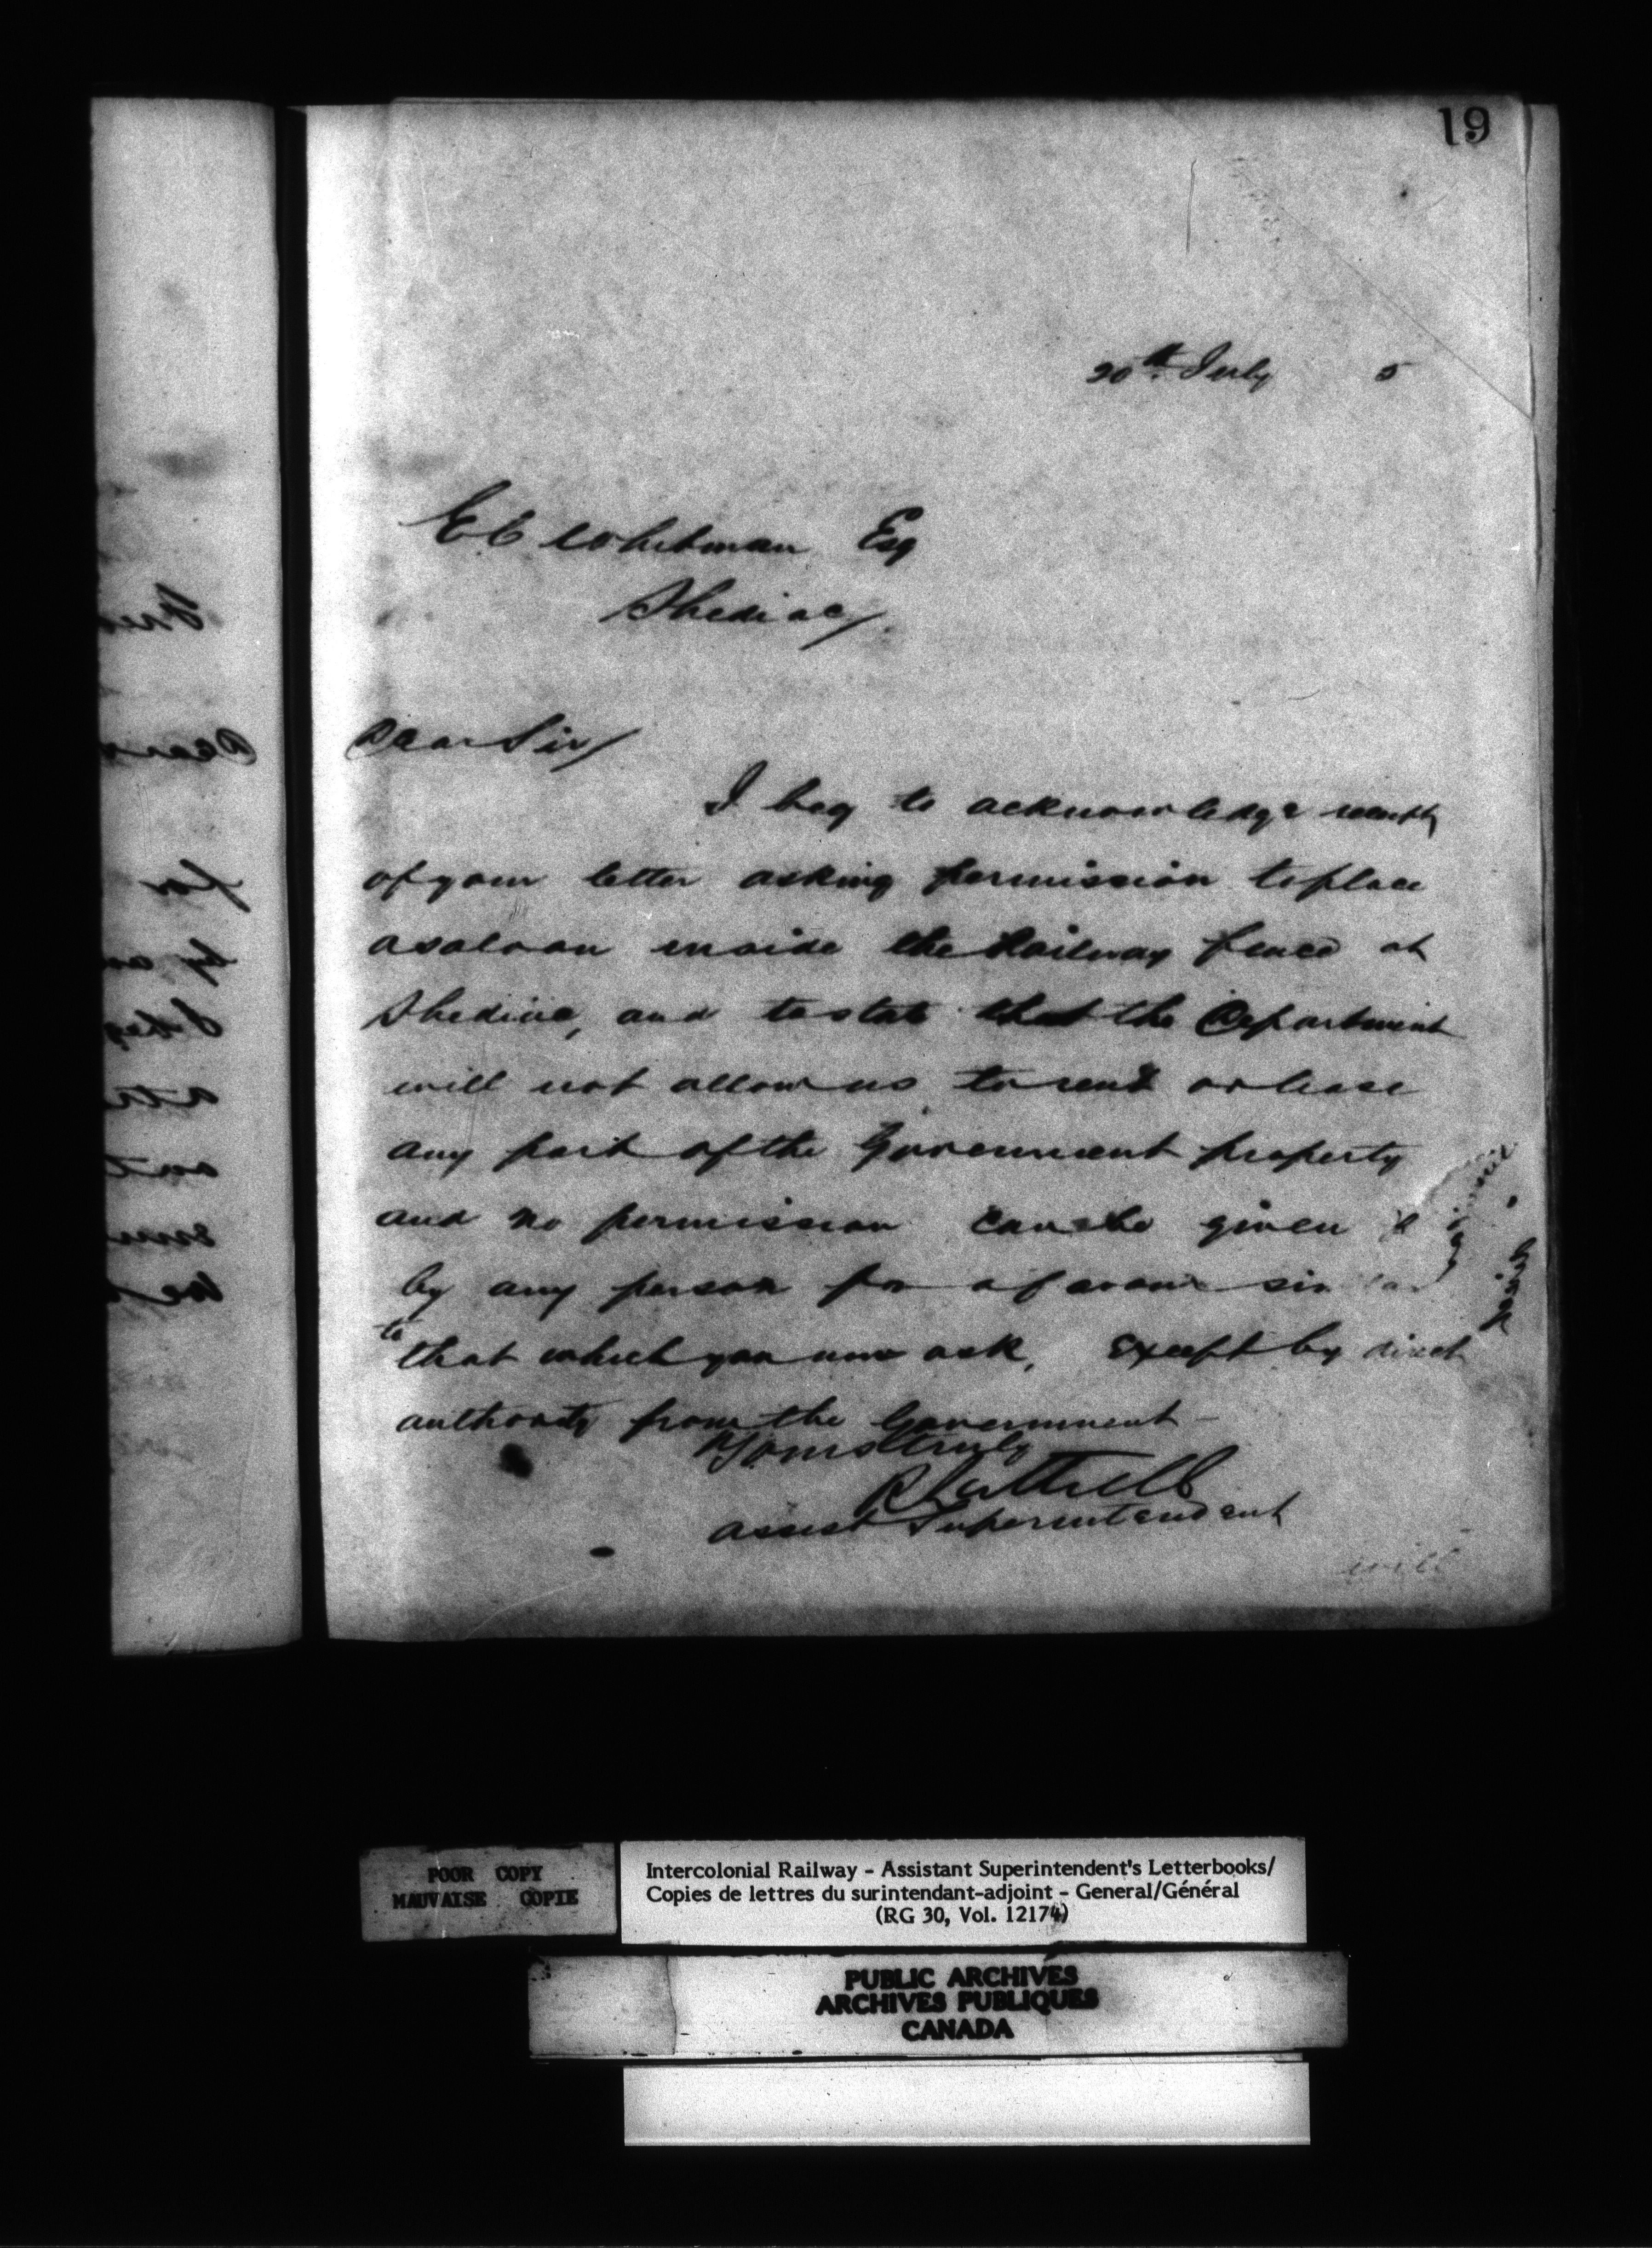 19
20th July 5
E C Whitman Esq
Shediac
Dear Sir
I beg to acknowledge receipt
of your letter asking permission to place
a saloon inside the Railway fence at
Shediac, and to state that the Department
will not allow us to rent or lease
any part of the Government property
and no permission can be given
by any person for a favour similar
to that which you now ask, Except by direct
authority from the Government -
Yours truly
R Luttrell
Assist Superintendent
will
POOR COPY
MAUVAISE COPIE
Intercolonial Railway - Assistant Superintendent's Letterbooks/
Copies de lettres du surintendant-adjoint - General/Général
(RG 30, Vol. 12174)
PUBLIC ARCHIVES
ARCHIVES PUBLIQUES
CANADA